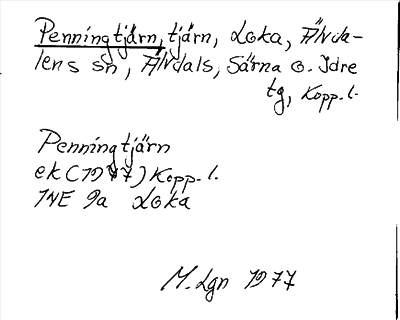 Penningtjärn, tjärn, Loka, Älvda-
lens sn, Älvdals, Särna o. Idre
tg, Kopp. l.
Penningtjärn
ek (1977) Kopp. l.
1NE 9a Loka
M. Lgn 1977